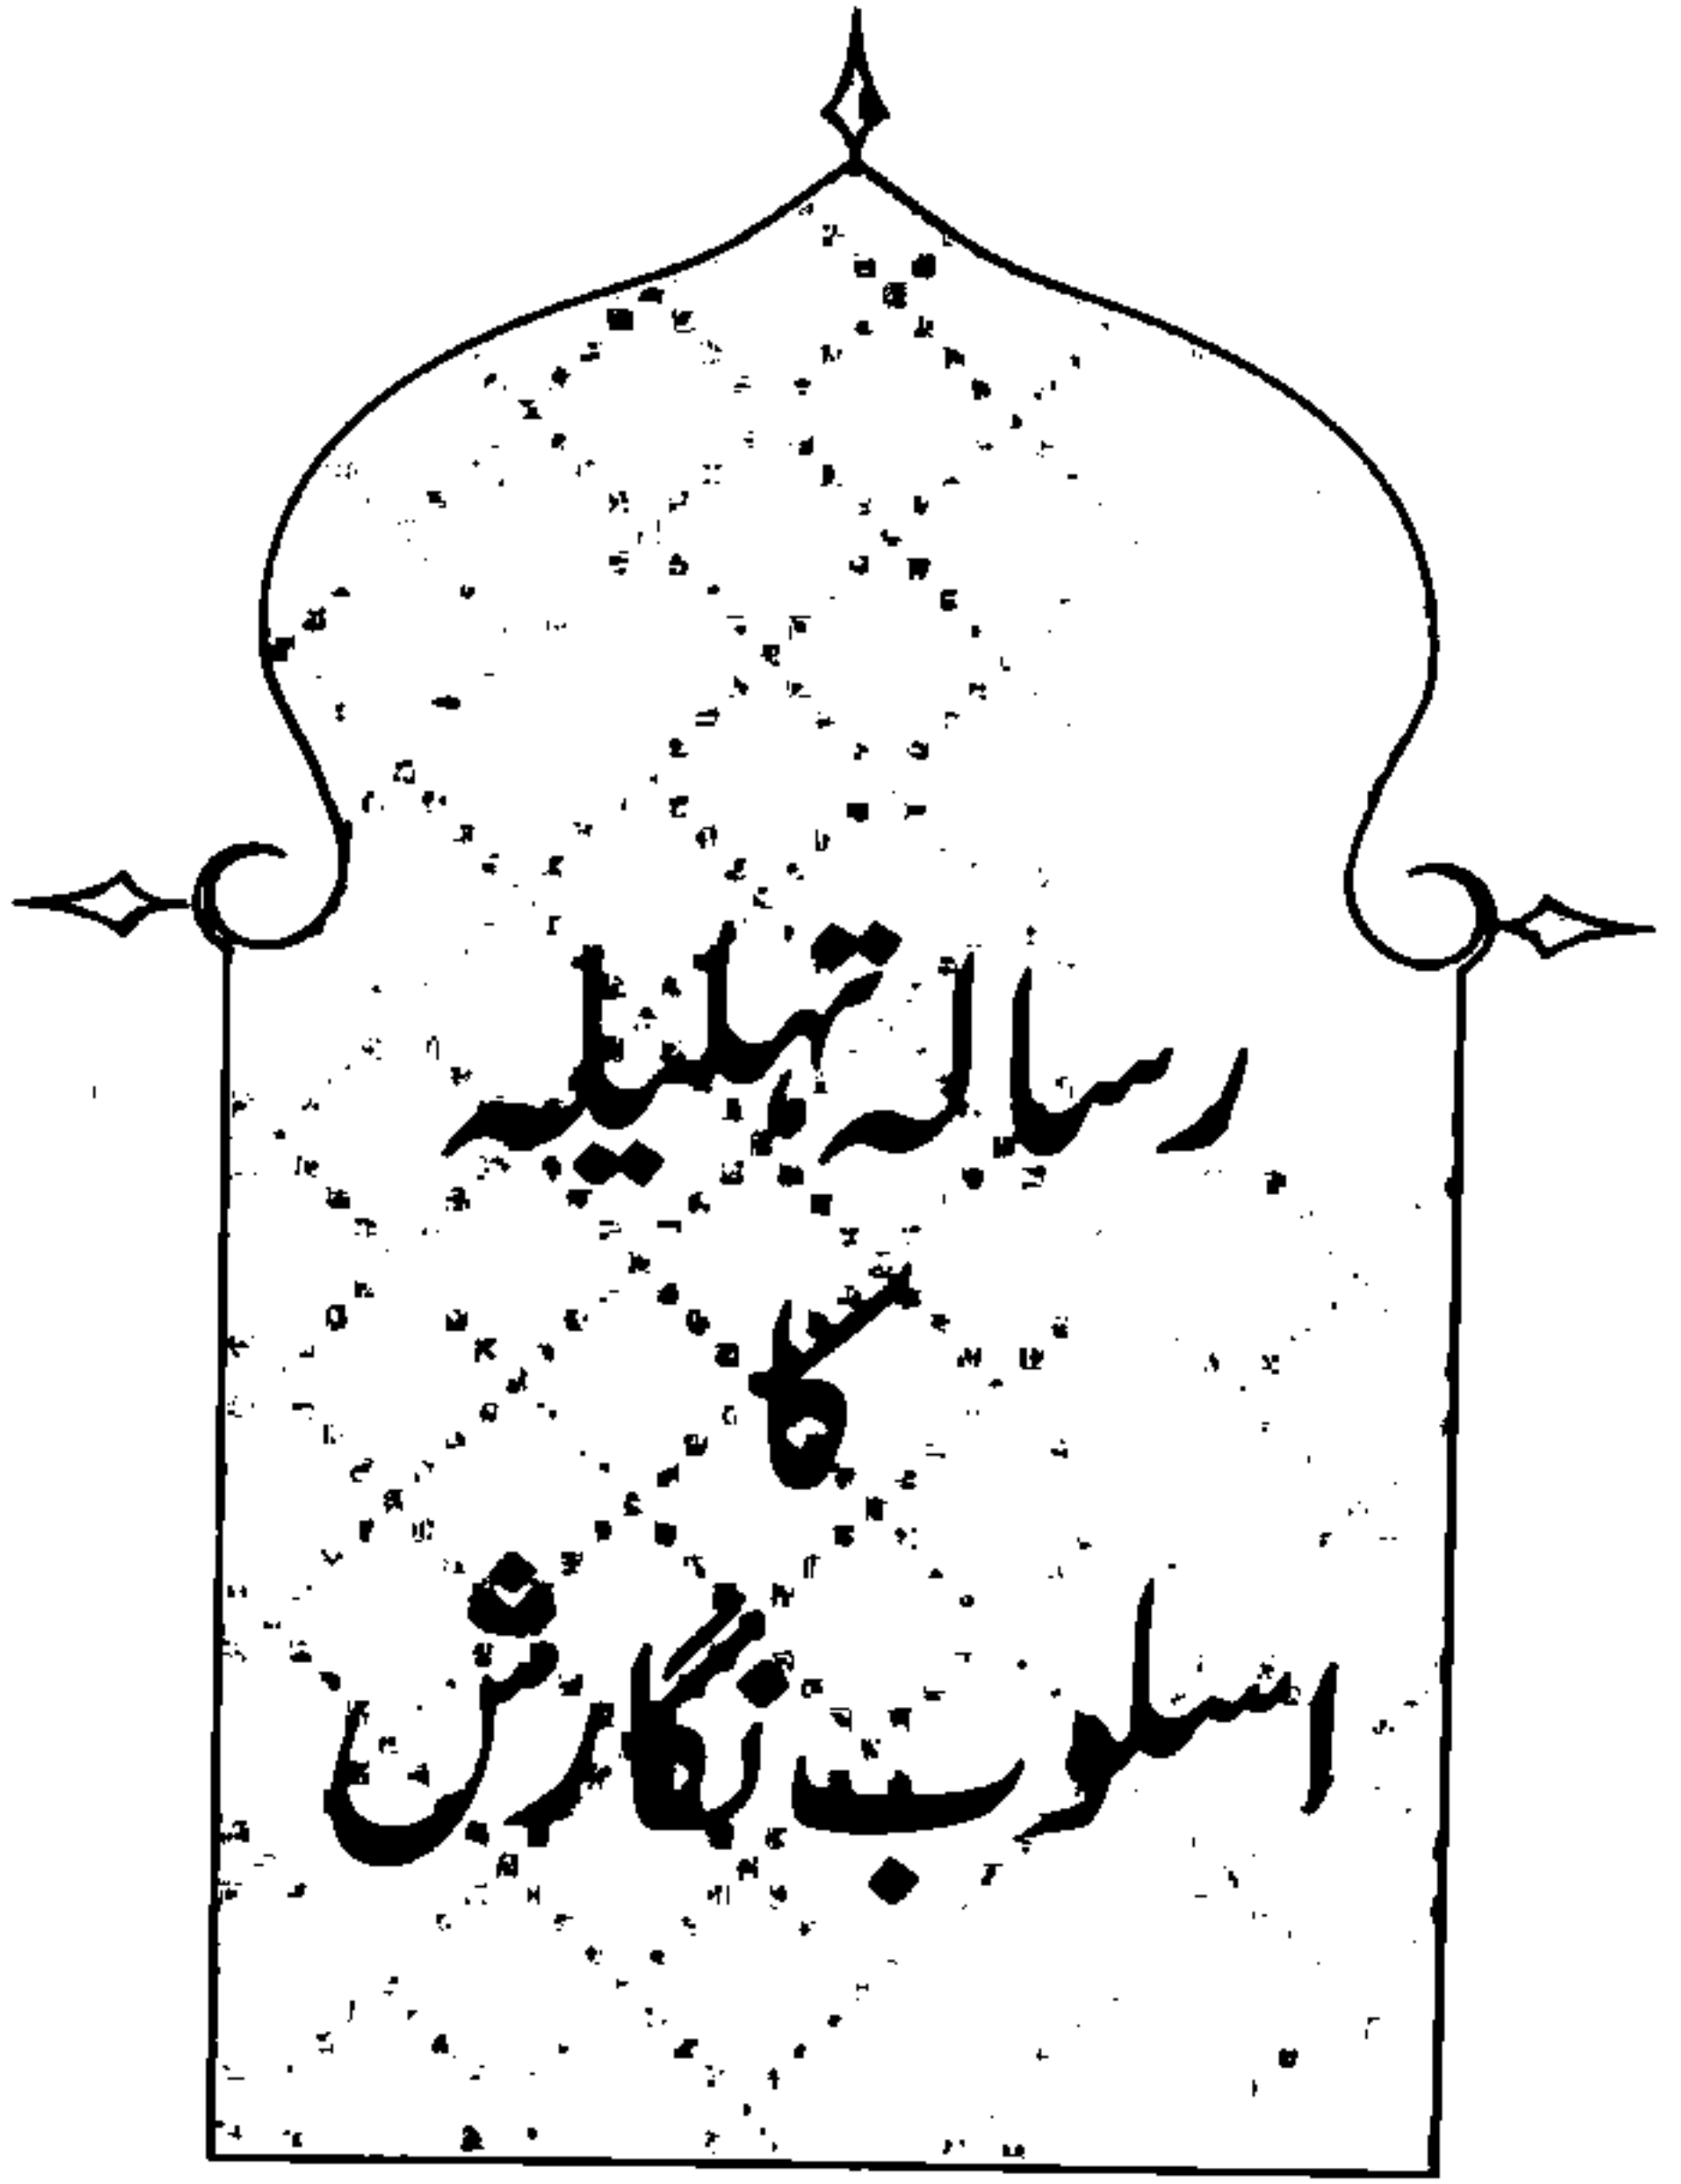 رسالہ تہلیلیہ
کا
اسلوب نگارش